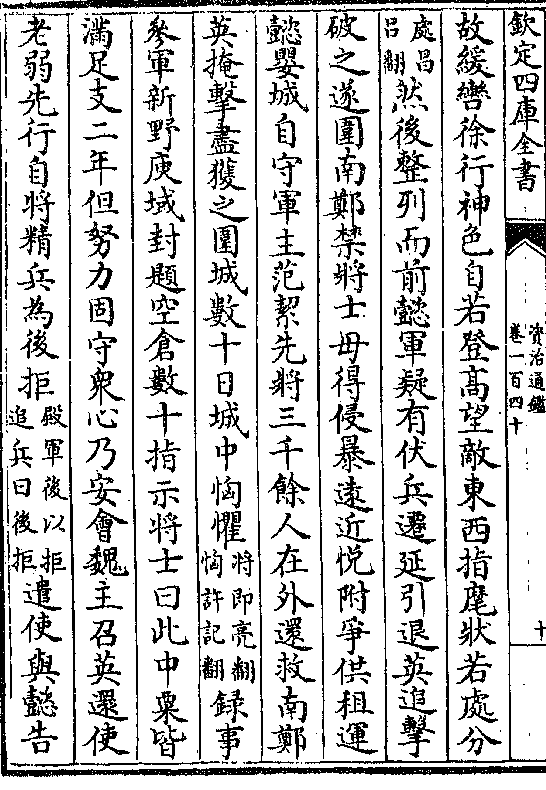 欽定四庫全書
資治通鑑
卷一百四十
十
故緩轡徐行神色自若登髙望敵東西指麾狀若處分
處昌
吕翻
然後整列而前懿軍疑有伏兵遷延引退英追擊
破之遂圍南鄭禁將士毋得侵暴遠近悦附爭供租運
懿嬰城自守軍主范絜先將三千餘人在外還救南鄭
英掩擊盡獲之圍城數十日城中恟懼
將即亮翻
恟許記翻
録事
參軍新野庾域封題空倉數十指示將士曰此中粟皆
滿足支二年但努力固守衆心乃安會魏主召英還使
老弱先行自將精兵為後拒
殿軍後以拒
追兵曰後拒
遣使與懿告